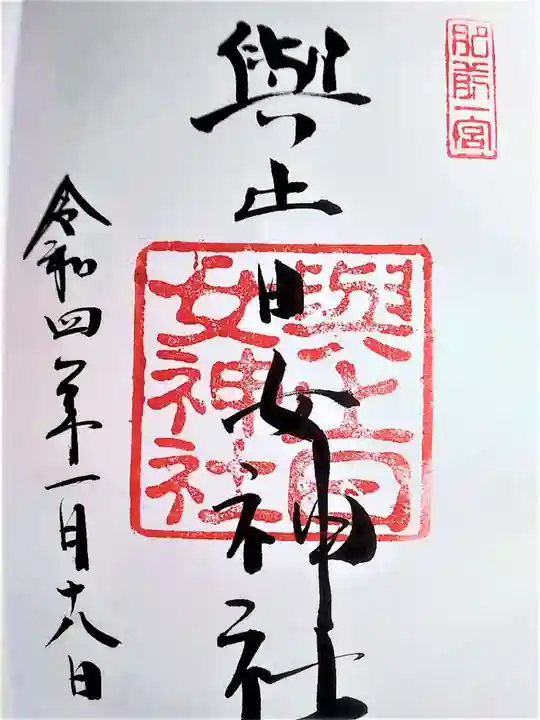 肥前一宮
與止日女神社
與止日
女神社
令和四年一月十八日